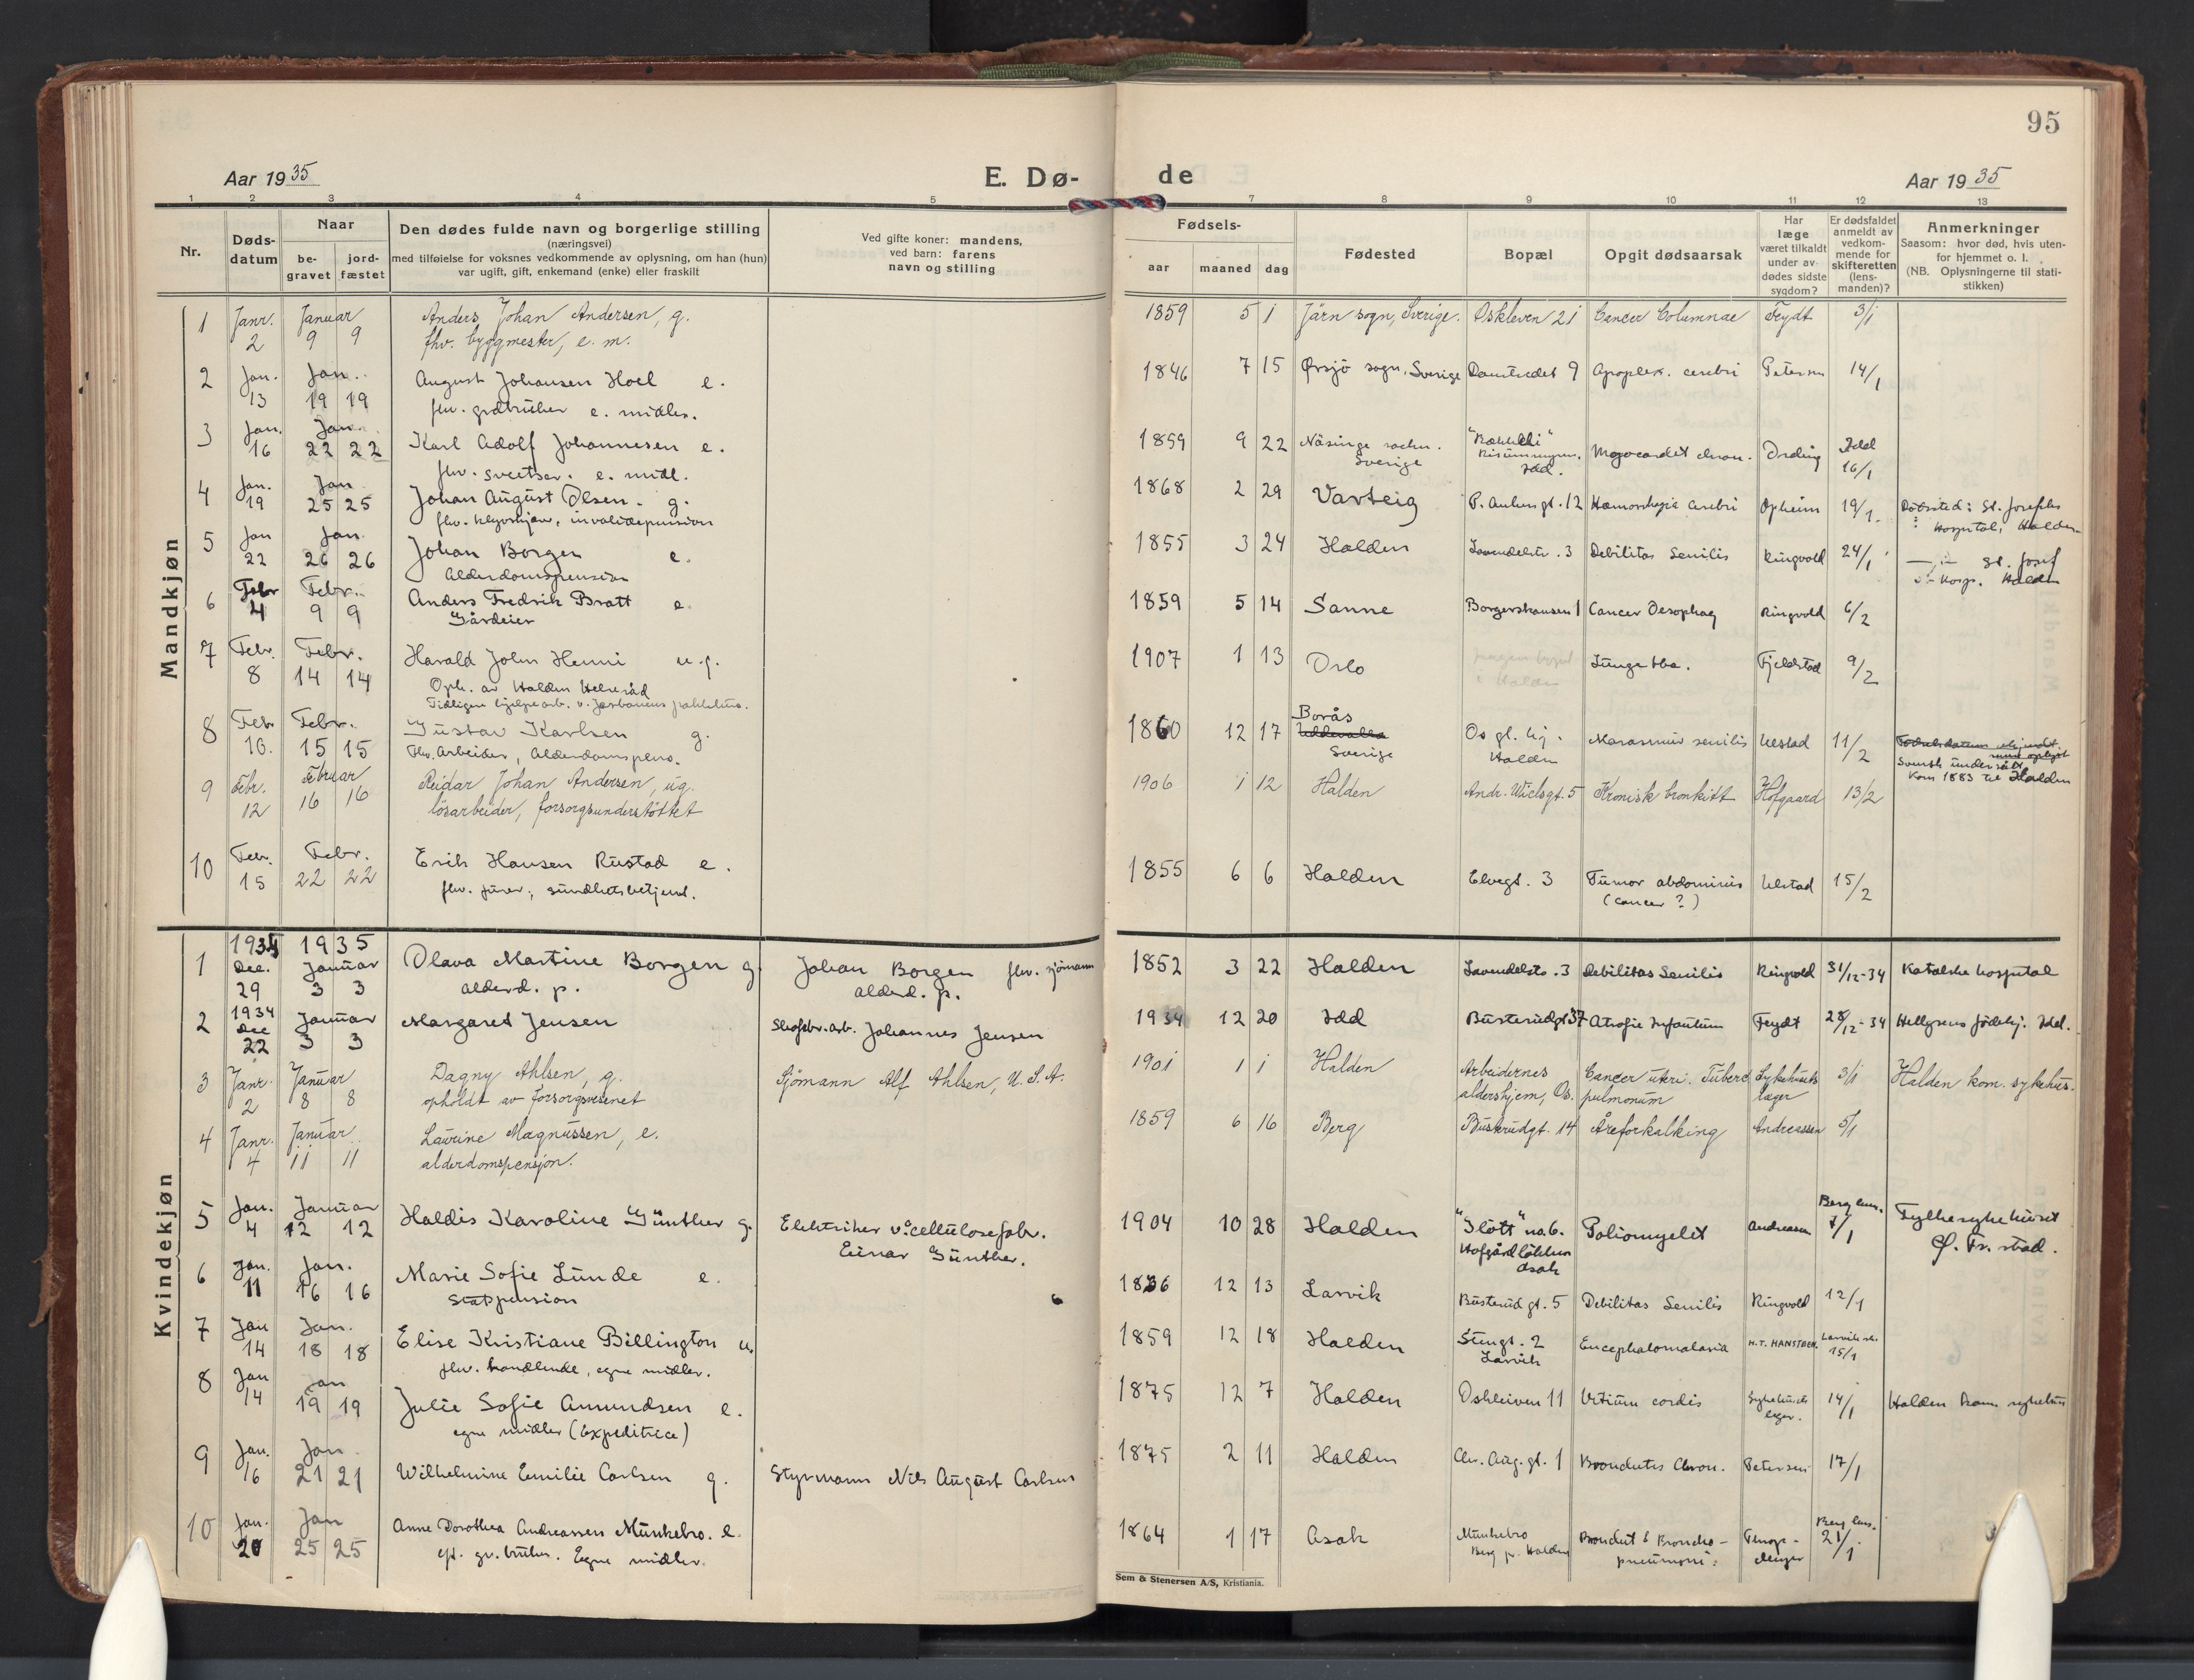 95
Aar 1935
E. Dø-
de
Aar 1935
1 2 3 4 5 7 8 9 10 11 12 13
Nr.
Døds-
datum
Naar
be-
gravet
jord-
fæstet
Den dødes fulde navn og borgerlige stilling
(næringsvei)
med tilføielse for voksnes vedkommende av oplysning, om han (hun)
var ugift, gift, enkemand (enke) eller fraskilt
Ved gifte koner: mandens,
ved barn: farens
navn og stilling
Fødsels-
aar maaned dag
Fødested
Bopæl
Opgit dødsaarsak
Har
læge
været tilkaldt
under av-
dødes sidste
sygdom?
Er dødsfaldet
anmeldt av
vedkom-
mende for
skifteretten
(lens-
manden)?
Anmerkninger
Saasom: hvor død, hvis uten-
for hjemmet o. l.
(NB. Oplysningerne til stati-
stikken)
Mandkjøn
1 Janr. Januar Anders Johan Andersen, g. 1859 5 1 Järn sogn, Sverige. Oskleven 21 Cancer Columnae Feydt 3/1
2 9 9 fhv. byggmester, e. m.
2 Jan. Jan. August Johansen Hoel e. 1846 7 15 Ørsjö sogn, Sverige Damstredet 9 Apoplex. cerebri Petersen 14/1
13 19 19 fhv. e. midler.
3 Jan. Jan. Karl Adolf Johannesen e. 1859 9 22 Näsinge Sverige Idd. chron. Ording Idd 16/1
16 22 22 fhv. e. midl.
4 Jan. Jan Johan August Olsen. g. 1868 2 29 Varteig P. Ankersgt. 12 Hæmorrhagia cerebri Opheim 19/1. Dødssted: St. Josephs
19 25 25 fhv. invalidepension Hospital, Halden
5 Jan Jan. Johan Borgen e. 1855 3 24 Halden Lavendelstr. 3 Debilitas Senilis Ringvold 24/1 St. Josef
22 26 26 Alderdomspension Hosp. Halden
6 Febr Febr. Anders Fredrik Bratt e. 1859 5 14 Sanne Borgershausen 1 Cancer Oesophag Ringvold 6/2
4 9 9 Gårdeier
7 Febr. Febr. Harald John Henni u.g. 1907 1 13 Oslo i Halden Lunge tbc. Fjeldstad 9/2
8 14 14 Oph. av Halden Helseråd
Tidligere hjelpearb. v. Jernbanens pakkhus.
8 Febr Febr. Gustav Karlsen g. 1860 12 17 Borås Sverige Os gl. hj. Halden Marasmus senilis Ulstad 11/2
10. 15 15 Fhv. Arbeider, Alderdomspens. Svensk undersått
Kom 1883 til Halden
9 Febr. Februar Reidar Johan Andersen, ug. 1906 1 12 Halden Andr. Wielsgt. 5 Kronisk bronkitt Hofgaard 13/2
12 16 16 lösarbeider, forsorgsunderstöttet
10 Febr. Febr. Erik Hansen Rustad e. 1855 6 6 Halden Elvegt. 3 Tumor abdominis Ulstad 15/2
15 22 22 fhv. sundhetsbetjent. (cancer ?)
Kvindekjøn
1 1934 Dec. 29 1935 Januar 3 3 Olava Martine Borgen g. Johan Borgen fhv. sjømann 1852 3 22 Halden Lavendelstr. 3 Debilitas Senilis Ringvold 31/12-34 Katolske hospital
alderd. p. alderd. p.
2 1934 Dec 22 Januar 3 3 Margaret Jensen Skofabr.arb. Johannes Jensen 1934 12 20 Idd Busterudgt 37 Atrofie Infantum Feydt 28/12-34 Hellgrens fødehj. Idd.
3 Janr. Januar Dagny Ahlsen, g. Sjömann Alf Ahlsen, U.S.A. 1901 1 1 Halden Arbeidernes Cancer uteri. Tuberc. Sykehusets 3/1 Halden kom. sykehus.
2 8 8 opholdt av forsorgsvesenet aldershjem, Os. pulmonum læger
4 Janr. Januar Laurine Magnussen, e. 1859 6 16 Berg Busterudgt. 14 Åreforkalking Andreassen 5/1
4 11 11 alderdomspensjon.
5 Jan. Januar Haldis Karoline Günther g. Elektriker v. cellulosefabr. 1904 10 28 Halden "Slott" Poliomyelit Andreassen Berg lens. 7/1 Fylkesykehuset
4 12 12 Einar Günther. Hofgårdløkken Ø. Fr. stad.
Asak
6 Jan. Jan. Marie Sofie Lunde e. 1836 12 13 Larvik Busterudgt. 5 Debilitas Senilis Ringvold 12/1
11 16 16 Statspension
7 Jan Jan. Elise Kristiane Billington u. 1859 12 18 Halden Stengt. 2 Encephalomalasia H.T. HANSTEEN. 15/1
14 18 18 fhv. handlende, egne midler. Larvik
8 Jan Jan Julie Sofie Amundsen e. 1875 12 7 Halden Oskleiven 11 Vitium cordis Sykehusets læger. 14/1 Halden kom. sykehus
14 19 19 egne midler (Expeditrice)
9 Jan. Jan. Wilhelmine Emilie Carlsen g. Styrmann Nils August Carlsen 1875 2 11 Halden Chr. Aug. gt. 1 Bronchitis Chron. Petersen 17/1
16 21 21
10 Jan. Jan Anne Dorothea Andreassen Munkebro. e. 1864 1 17 Asak Munkebro Bronchit & Broncho- Berg lens. 21/1
20 25 25 Egne midler. Berg pr. Halden pneumoni
Sem & Stenersen A/S, Kristiania.